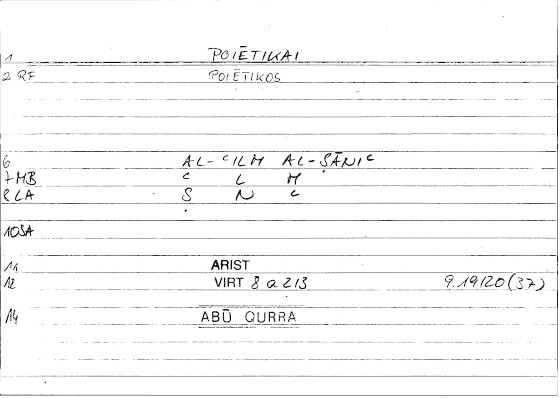 1 POIĒTIKAI
2 RF POIĒTIKOS
6 AL-ᶜILM AL-ṢĀNIᶜ
7 MB ᶜ L M
8 LA Ṣ N ᶜ
10SA
11 ARIST
12 VIRT 8 a 2/3 9.19/20 (37)
14 ABŪ QURRA